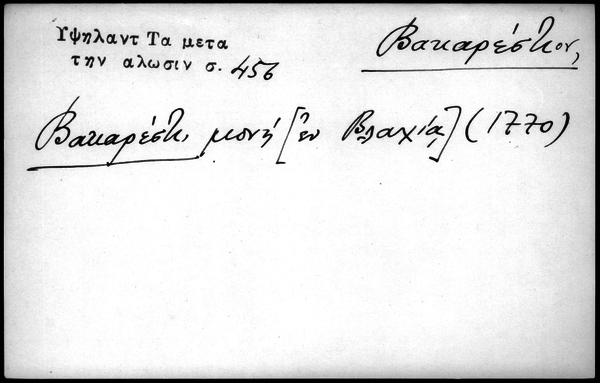 Υψηλαντ Τα μετα
την αλωσιν σ. 456
Βακαρέστιον,
Βακαρέστι μονή [ἐν Βλαχίᾳ] (1770)